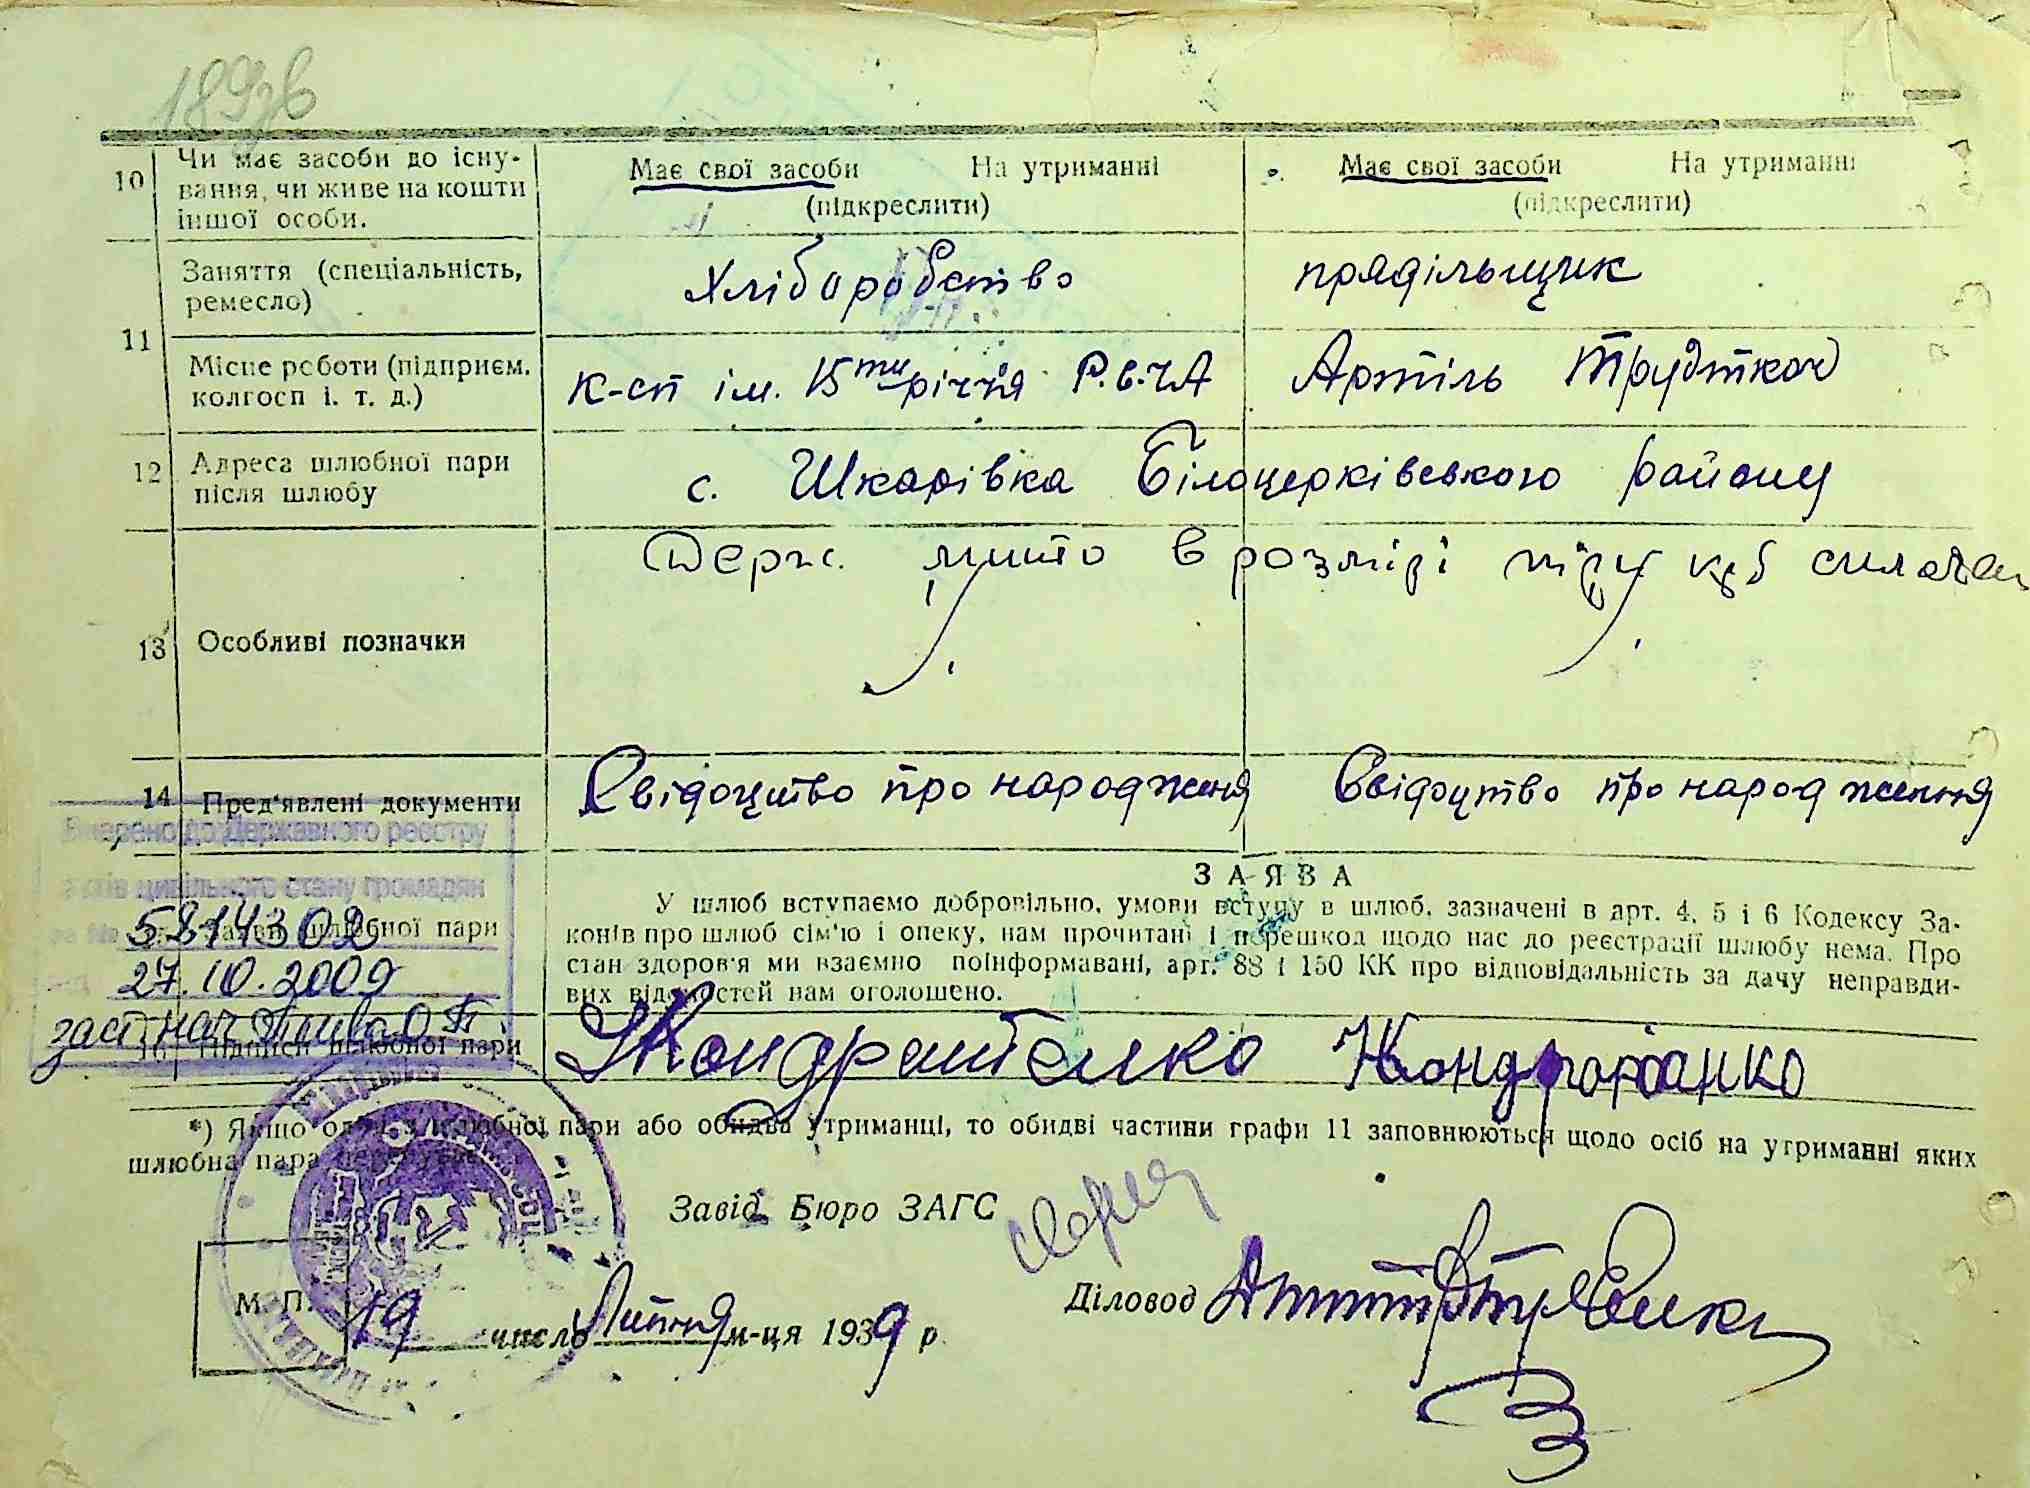 189зв
10 Чи має засоби до існу-
вання, чи живе на кошти
іншої особи.
Має свої засоби На утриманні
(підкреслити)
Має свої засоби На утриманні
(підкреслити)
11
Заняття (спеціальність,
ремесло)
Хліборобство
прядільщик
Місце роботи (підприєм.
колгосп і. т. д.)
К-сп ім. 15ти річчя Р.В.ЧА
Артіль Трудткач
12 Адреса шлюбної пари
після шлюбу
с. Шкарівка Білоцерківського району
13 Особливі позначки
Держ. мито в розмірі крб
14 Пред'явлені документи
Свідоцтво про народження
Свідоцтво про народження
Внесено до Державного реєстру
актів цивільного стану громадян
за № 5814302
від 27.10.2009
заст. нач
Заява шлюбної пари
ЗАЯВА
У шлюб вступаємо добровільно, умови вступу в шлюб, зазначені в арт. 4, 5 і 6 Кодексу За-
конів про шлюб сім'ю і опеку, нам прочитані і перешкод щодо нас до реєстрації шлюбу нема. Про
стан здоров'я ми взаємно поінформавані, арт. 88 і 150 КК про відповідальність за дачу неправди-
вих відомостей нам оголошено.
16 Підписи шлюбної пари
Кондратенко
*) Якщо один з шлюбної пари або обидва утриманці, то обидві частини графи 11 заповнюються щодо осіб на утриманні яких
шлюбна пара перебуває.
Завід. Бюро ЗАГС
Діловод
М. П.
19 число Липня м-ця 1939 р.